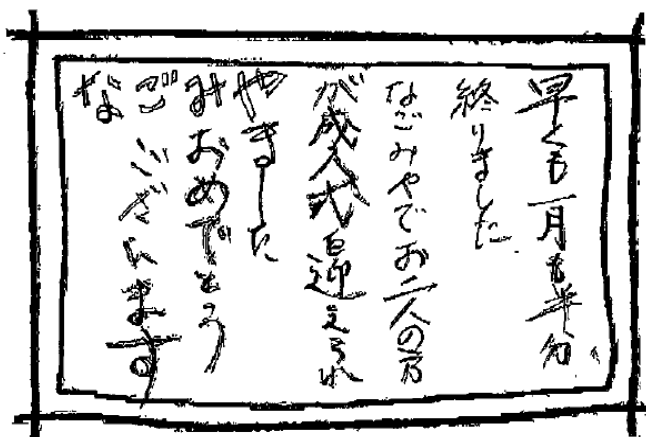 早くも一月も半分
終りました
なごみやでお二人の方
が成人式迎えられ
ました
おめでとう
ございます
なごみや